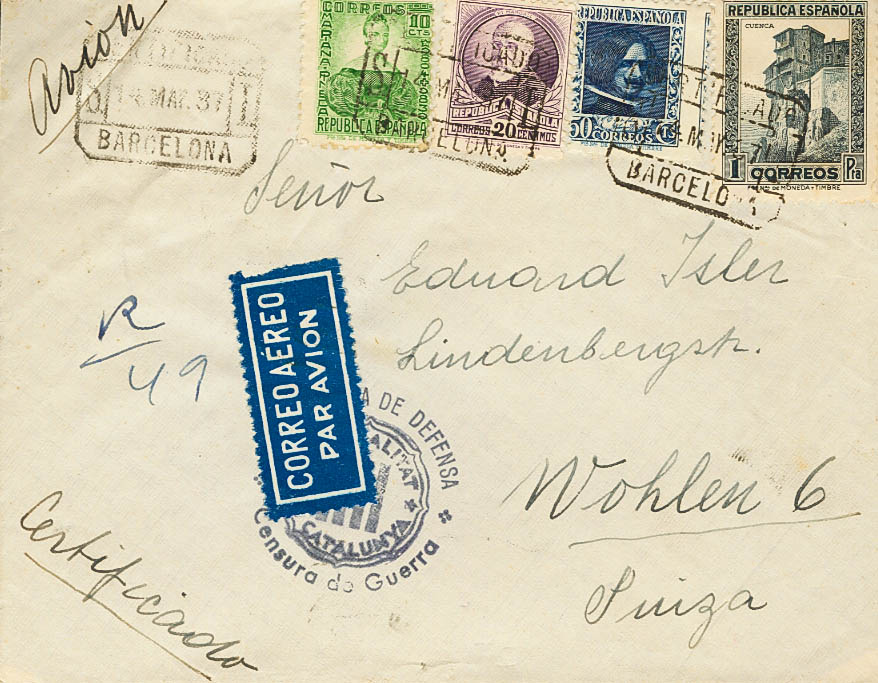 Avión
CERTIFICADO
14 MAR. 37
BARCELONA
10
CTS
MARIANA PINEDA
REPUBLICA ESPAÑOLA
REPUBLICA ESPAÑOLA
CORREOS 20 CENTIMOS
REPUBLICA ESPAÑOLA
50 CORREOS CTS
REPUBLICA ESPAÑOLA
CUENCA
1 CORREOS Pta
BARCELONA
Señor
Eduard Isler
Lindenbergstr.
Wohlen 6
Suiza
R
49
CORREO AÉREO
PAR AVION
A DE DEFENSA
ALITAT
CATALUNYA
Censura de Guerra
Certificado